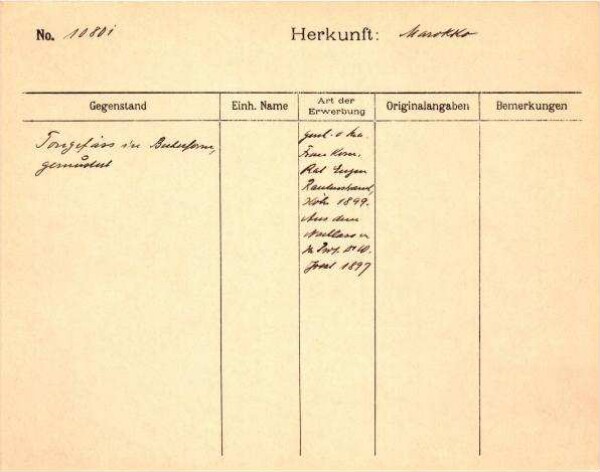 No. 10801
Herkunft: Marokko
Gegenstand
Einh. Name
Art der Erwerbung
Originalangaben
Bemerkungen
Tongefäss in Becherform,
gemustert
Frau Kom.
Rat Eugen
Rautenstrauch,
Köln 1899.
Aus dem
Nachlasse
Prof. Dr. W.
Joest 1897